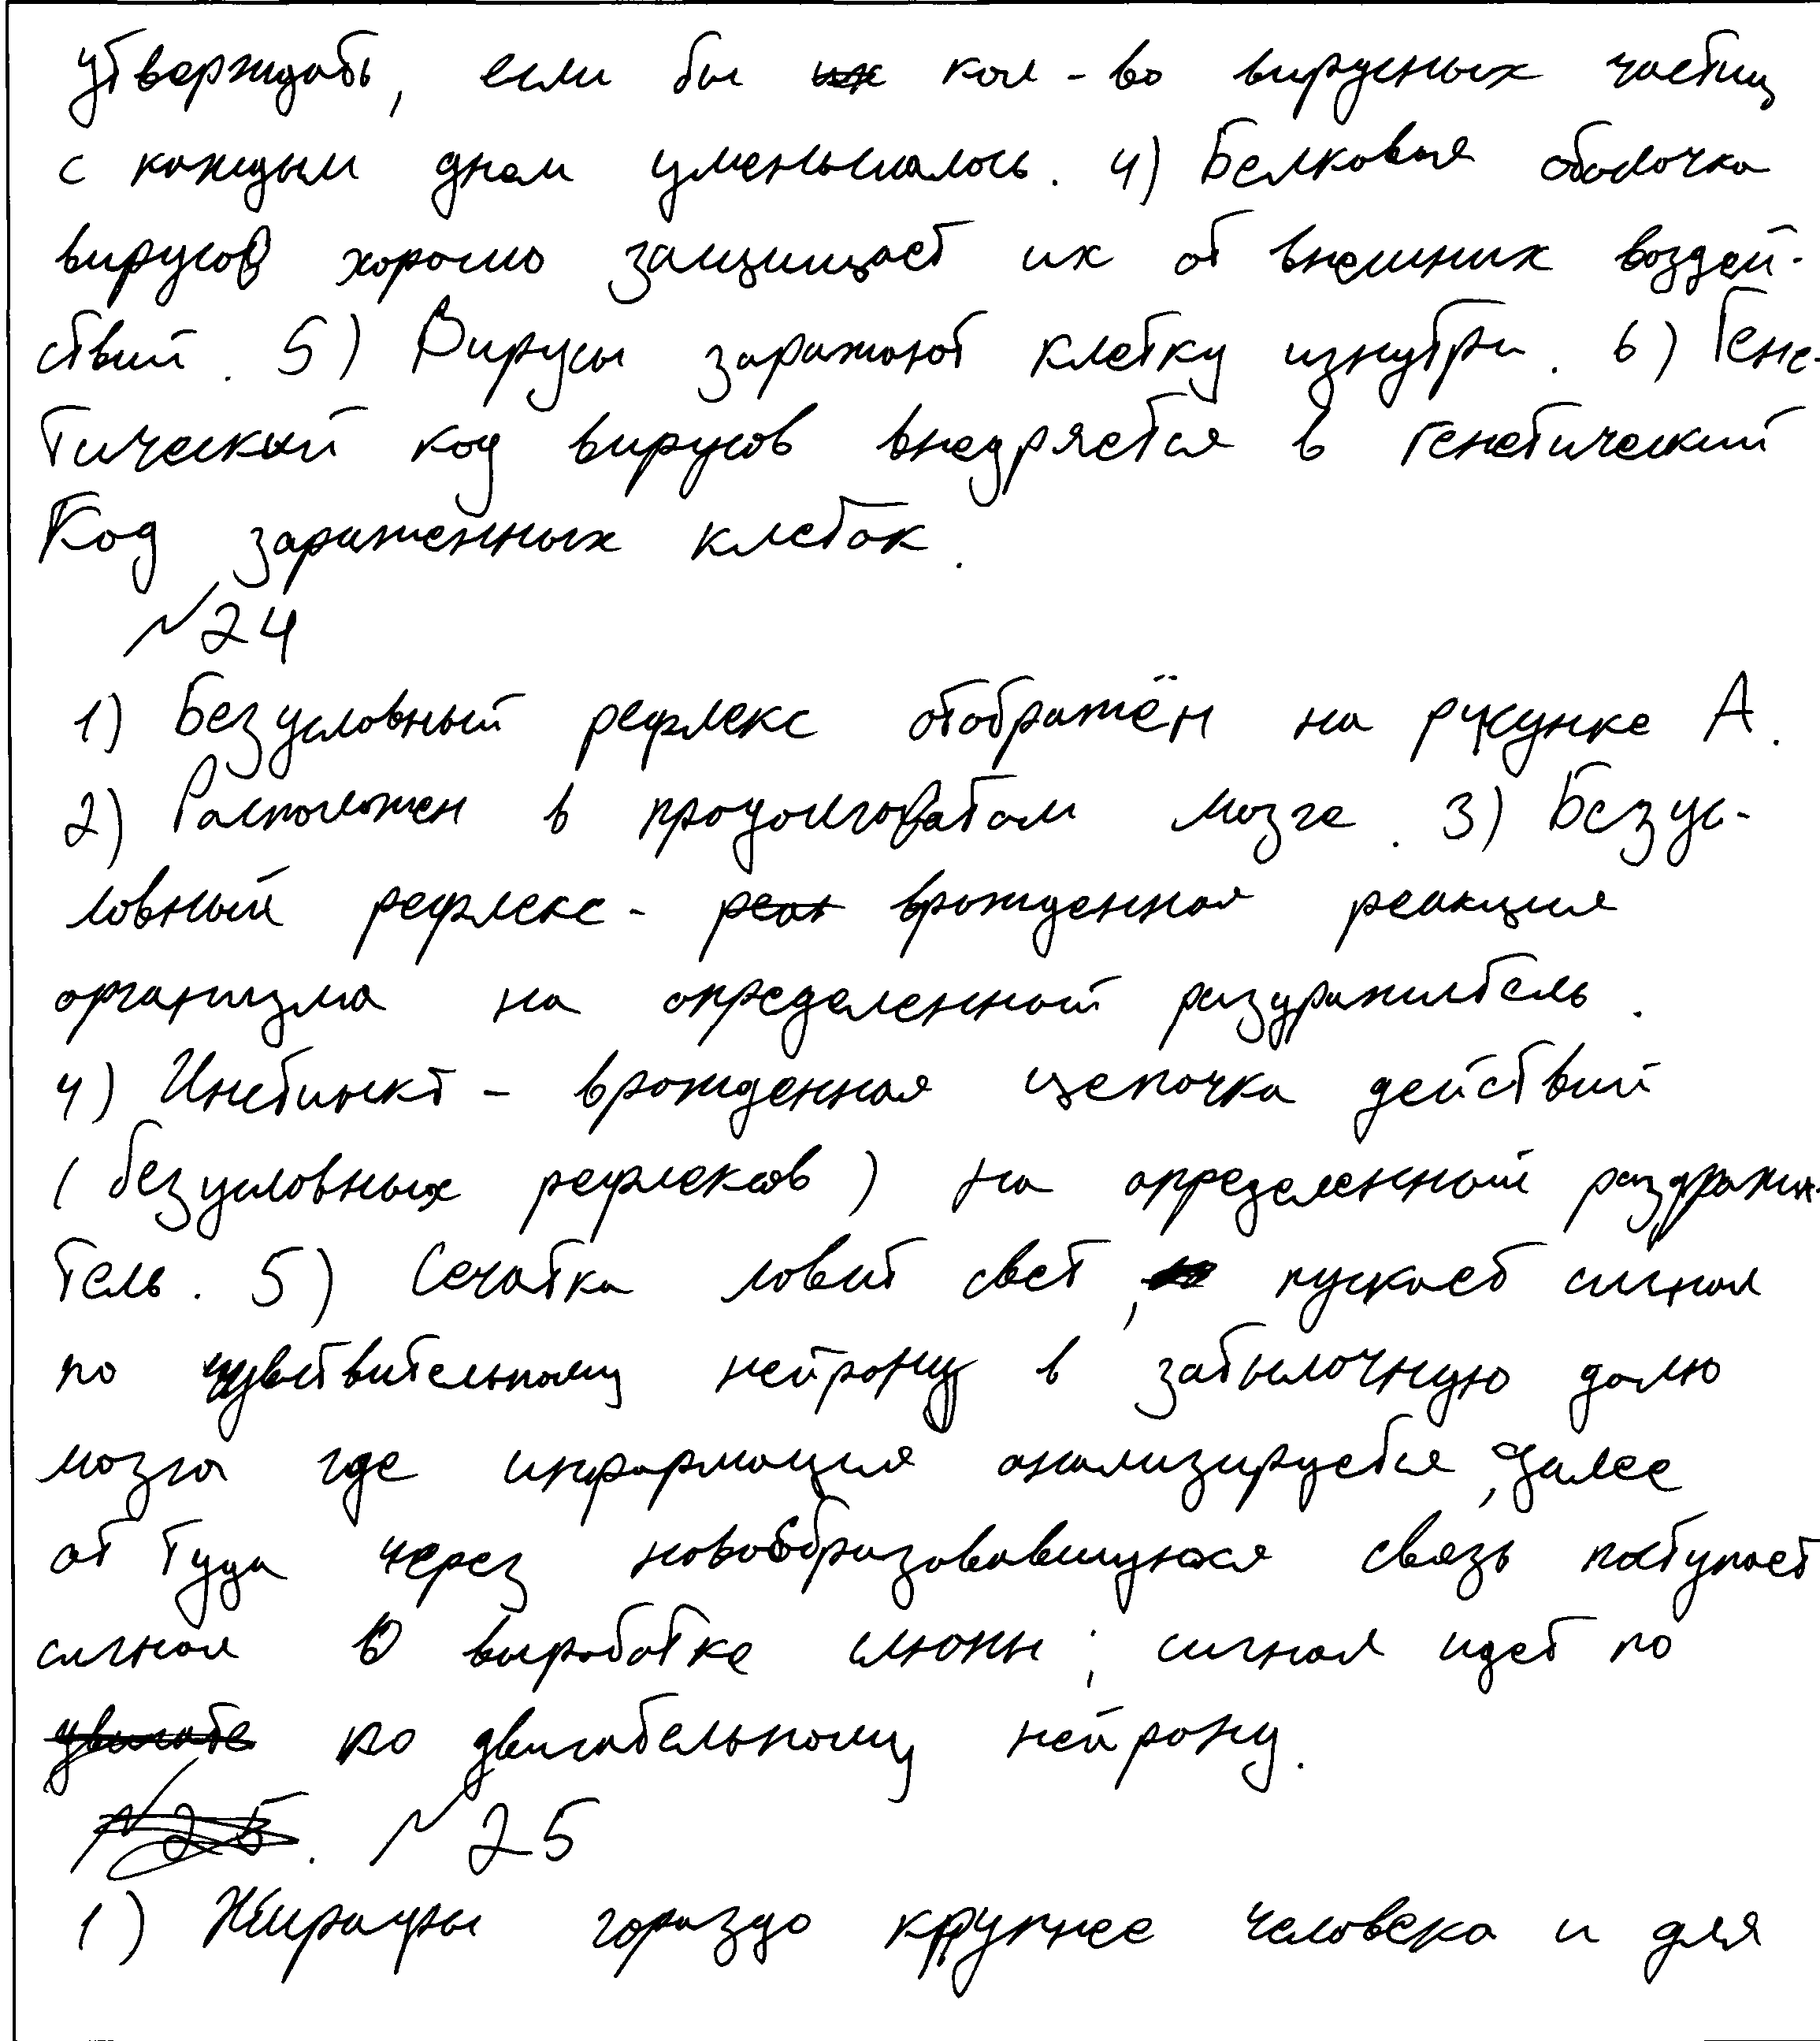 утверждать, если бы кол-во вирусных частиц
с каждым днем уменьшалось. 4) Белковая оболочка
вирусов хорошо защищает их от внешних воздей-
ствий. 5) Вирусы заражают клетку изнутри. 6) Гене-
тический код вирусов внедряется в генетический
Код зараженных клеток.
№24
1) Безусловный рефлекс отображён на рисунке А.
2) Расположен в продолговатом мозге. 3) Безус-
ловный рефлекс - реак врожденная реакция
организма на определенный раздражитель.
4) Инстинкт - врожденная цепочка действий
(безусловных рефлексов) на определенный раздражи-
тель. 5) Сечатка ловит свет, пускает сигнал
по чувствительному нейрону в затылочную долю
мозга где информация анализируется, далее
от туда через новообразовавшуюся связь поступает
сигнал о выработке слюны; сигнал идет по
двигате по двигательному нейрону.
№25. №25
1) Жирафы гораздо крупнее человека и для